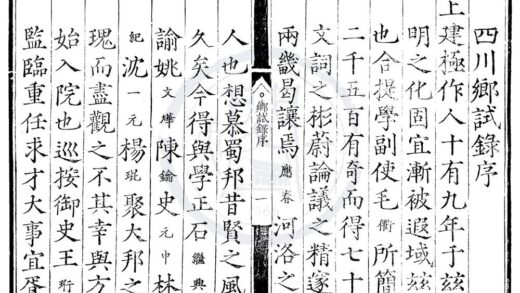 四川鄉試錄序
上建極作人十有九年于兹
明之化固宜漸被遐域兹
也合提學副使毛衢所簡
二千五百有奇而得七十
文詞之彬蔚論議之精邃
兩畿曷讓焉應春河洛之
鄉試錄序 一
人也想慕蜀邦昔賢之風
久矣今得與學正石繼典
諭姚文燁陳鑰史元申林
紀沈一元楊琨聚大邦之
瑰而盡觀之不其幸與方
始入院也巡按御史王珩
監臨重任求才大事宜胥